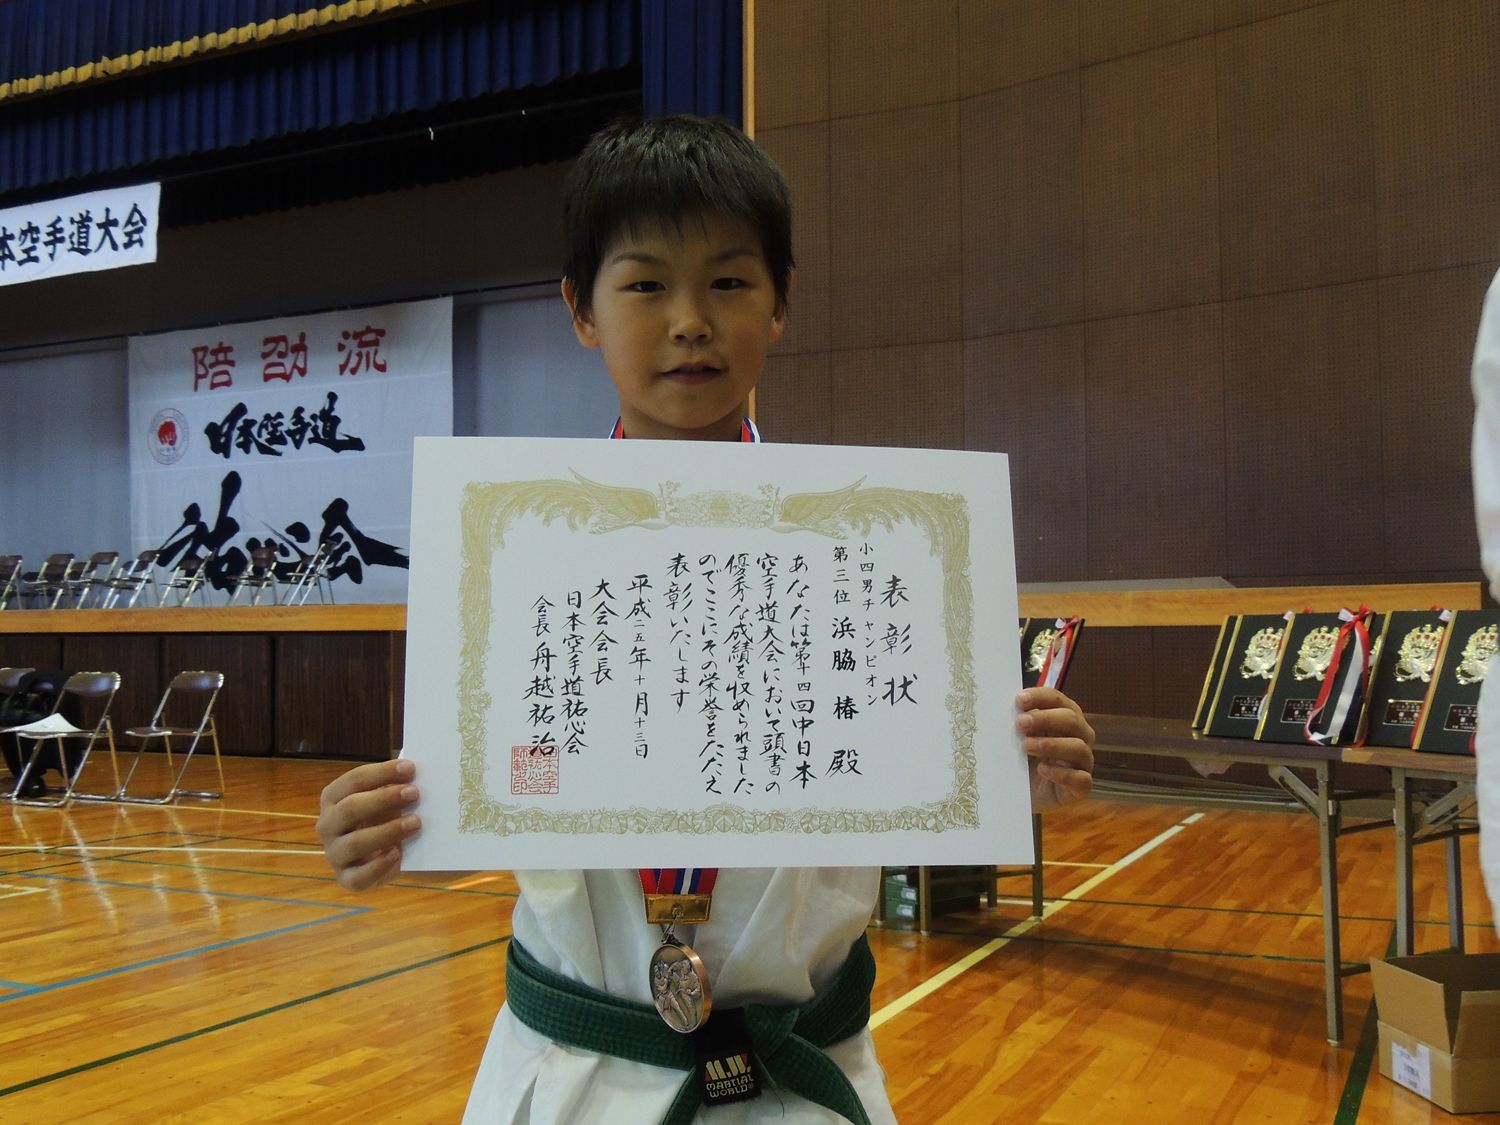 本空手道大会
陪劭流
日本空手道
祐心会
表彰状
小四男チャンピオン
第三位 浜脇 椿 殿
あなたは第十四回中日本
空手道大会において頭書の
優秀な成績を収められました
のでここにその栄誉をたたえ
表彰いたします
平成二五年十月十三日
大会会長
日本空手道祐心会
会長 舟越祐治
M.W.
MARTIAL
WORLD